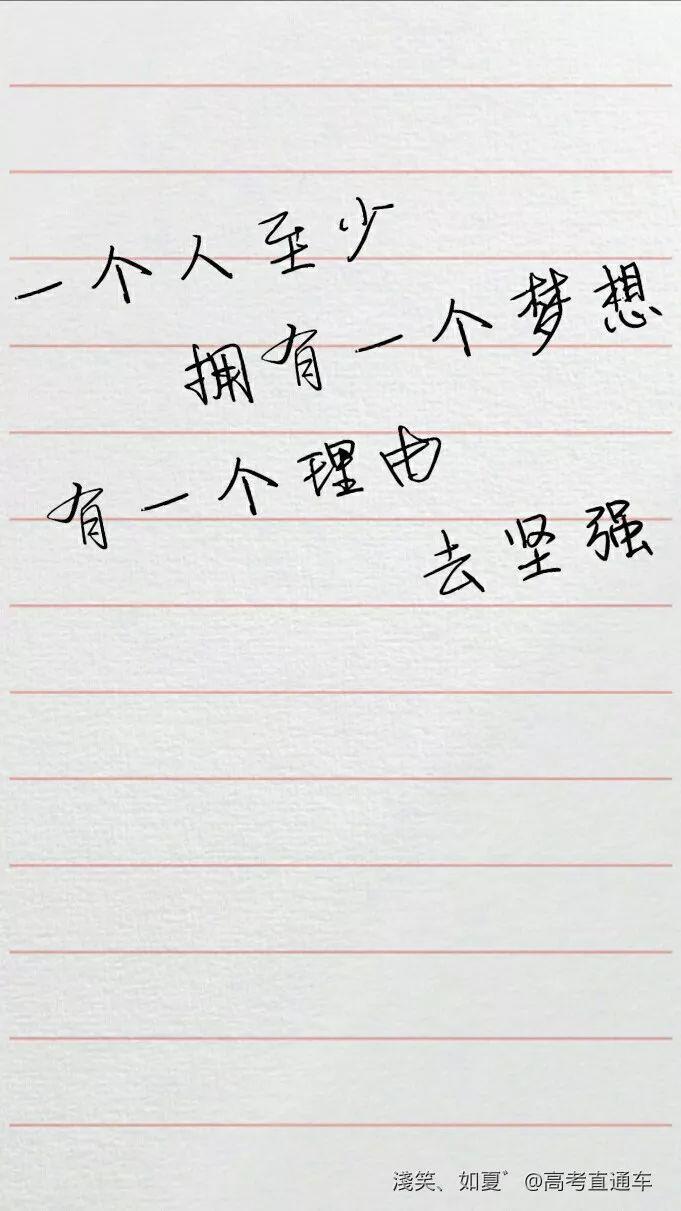 一个人至少
拥有一个梦想
有一个理由
去坚强
淺笑、如夏゛@高考直通车